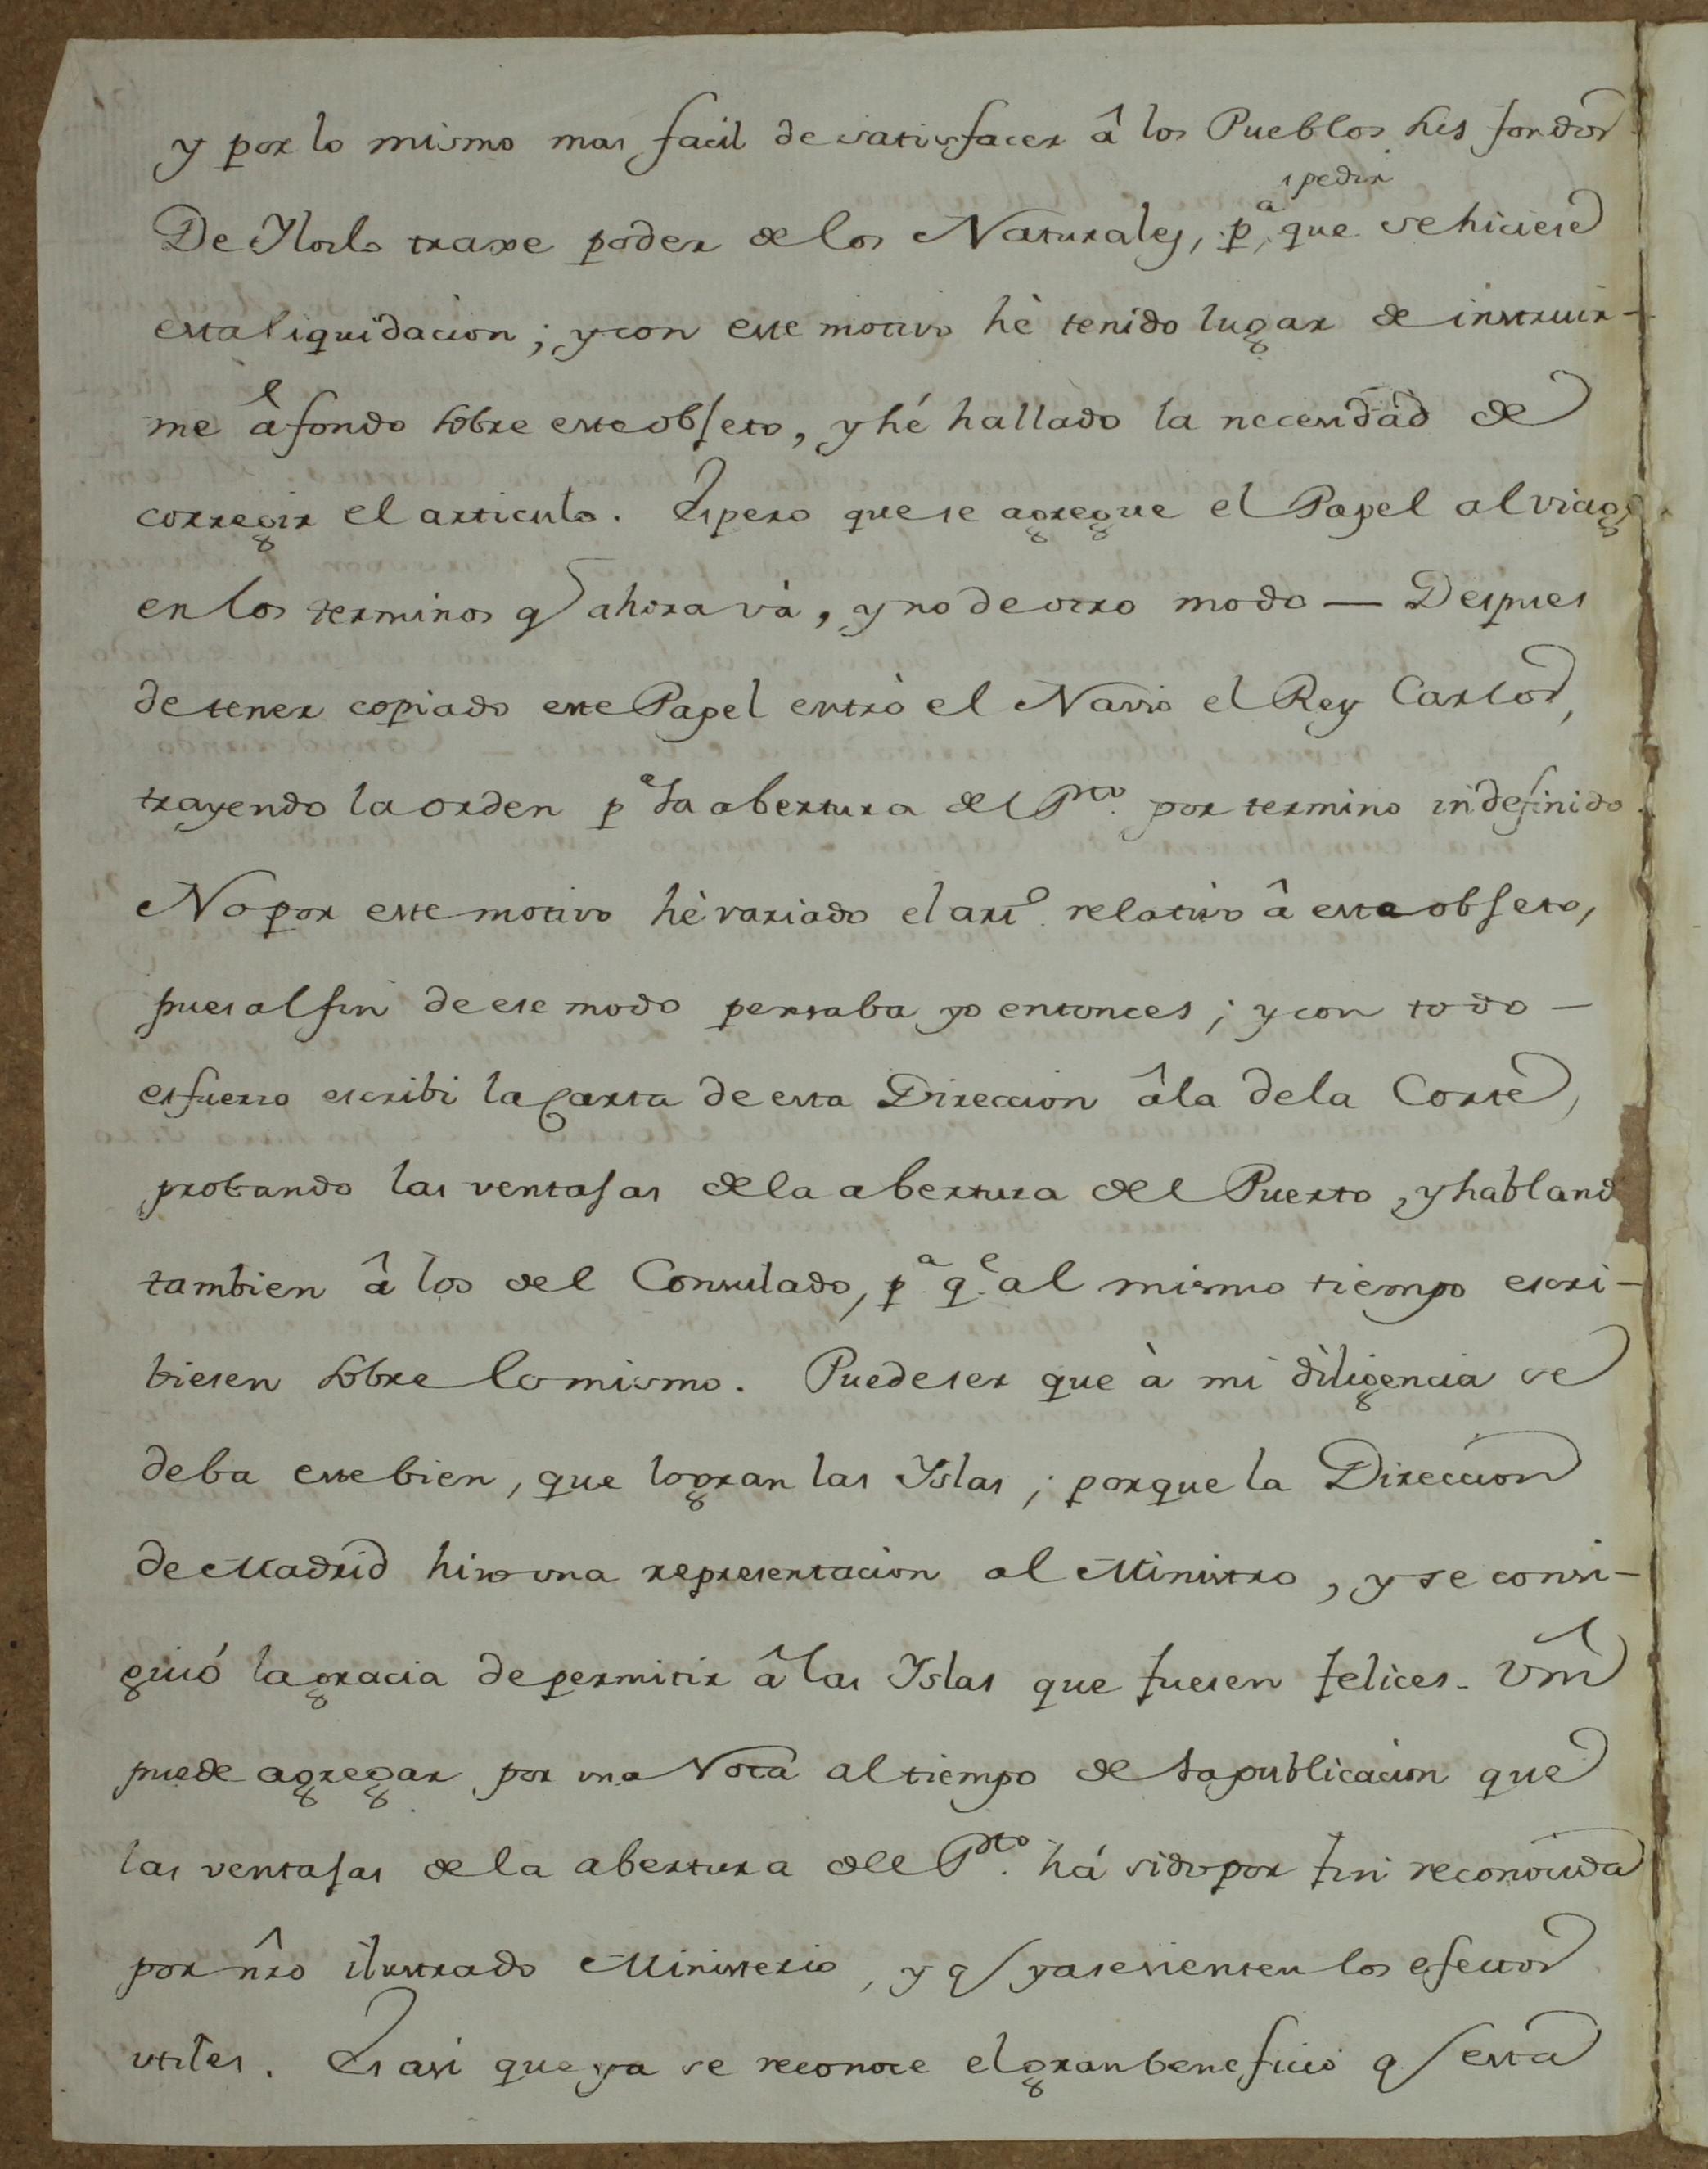 y por lo mismo mas facil de satisfacer â los Pueblos sus fondos
pedir
De Yloilo traxe poder de los Naturales, pª que se hiciese
esta liquidacion; y con este motivo hè tenido lugar de instruir-
me â fondo sobre este objeto, y hé hallado la necesidad de
corregir el articulo. Espero que se agregue el Papel al viage
en los terminos q ahora và, y no de otro modo — Despues
de tener copiado este Papel entrò el Navio el Rey Carlos,
trayendo la orden pª la abertura del Pto. por termino indefinido.
No por este motivo hè variado el artº. relativo â esta objeto,
pues al fin de ese modo pensaba yo entonces; y con todo —
esfuerzo escribi la Carta de esta Direccion âla dela Corte,
probando las ventajas dela abertura del Puerto, y habland
tambien â los del Consulado, pª qe al mismo tiempo escri-
biesen sobre lo mismo. Puede ser que à mi diligencia se
deba este bien, que logran las Yslas; porque la Direccion
de Madrid hizo una representacion al Ministro, y se consi-
guió la gracia de permitir â las Yslas que fuesen felices. Vm̂
puede agregar por una Nota al tiempo de la publicacion que
las ventajas de la abertura del Pto. há sido por fin reconocida
por nr̂o ilustrado Ministerio, y q ya se sienten los efectos
utiles. Es asi que ya se reconoce el gran beneficio q esta